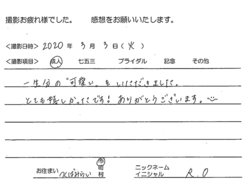 撮影お疲れ様でした。 感想をお願いいたします。
<撮影日時> 2020年 3月 3日(火)
<撮影項目> 成人 七五三 ブライダル 記念 その他
一生分の"可愛い"をいただきました。
とても嬉しかったです! ありがとうございます。
お住まい つくばみらい 市 村
ニックネーム イニシャル R.O